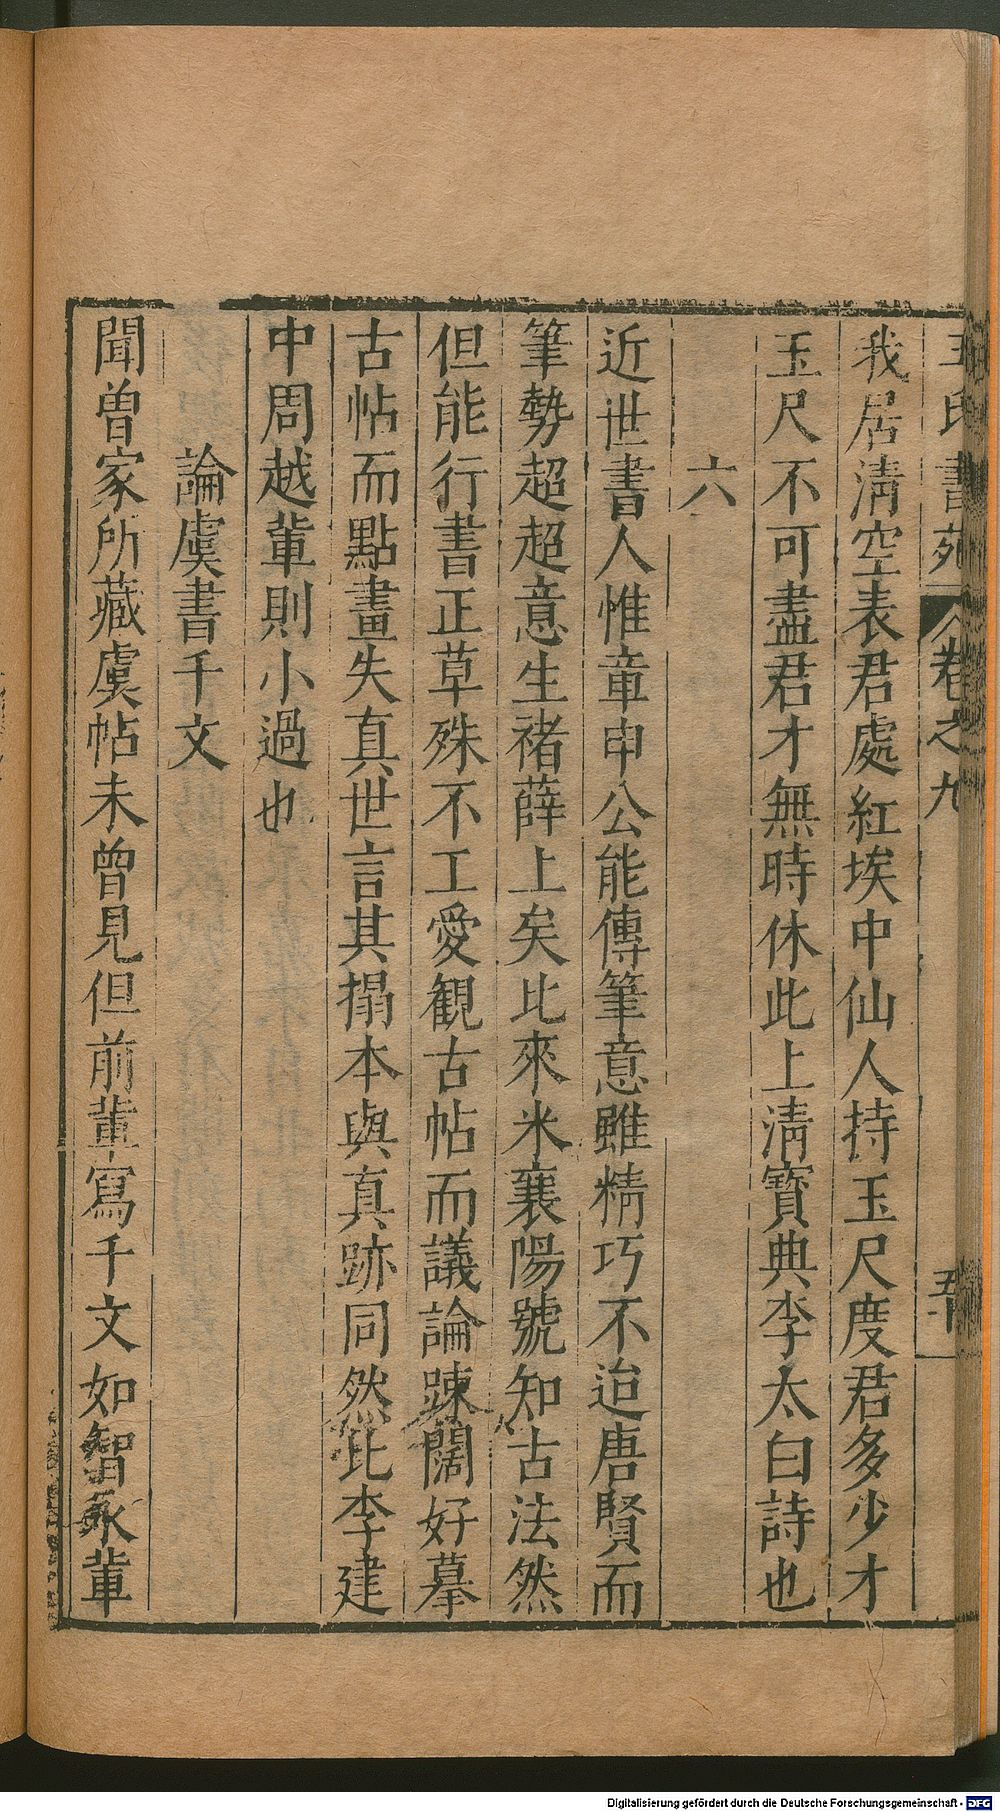 王氏書苑 卷之九 五十
我居清空表君處紅埃中仙人持玉尺度君多少才
玉尺不可盡君才無時休此上清寶典李太白詩也
六
近世書人惟章申公能傳筆意雖精巧不迨唐賢而
筆勢超超意生褚薛上矣比來米襄陽號知古法然
但能行書正草殊不工愛観古帖而議論踈闊好摹
古帖而點畫失真世言其搨本與真跡同然比李建
中周越軰則小過也
論虞書千文
聞曾家所藏虞帖未曾見但前軰寫千文如智永軰
Digitalisierung gefördert durch die Deutsche Forschungsgemeinschaft - DFG